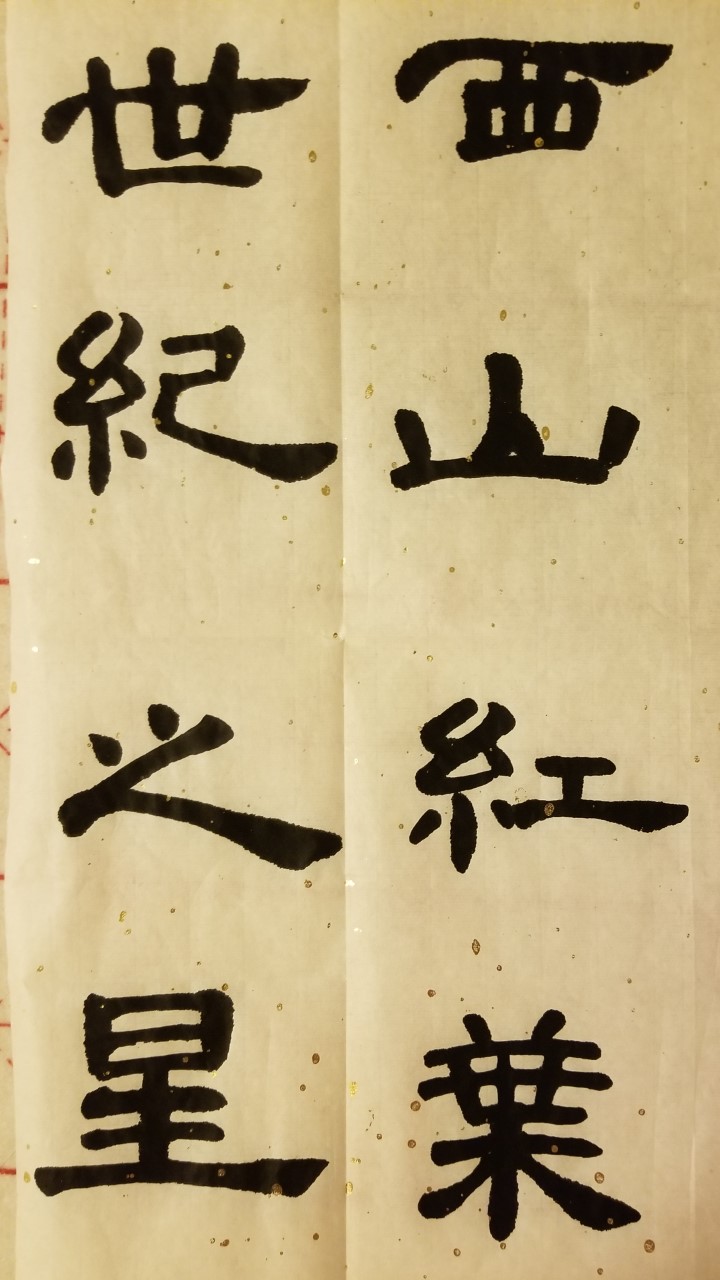 西山紅葉
世紀之星